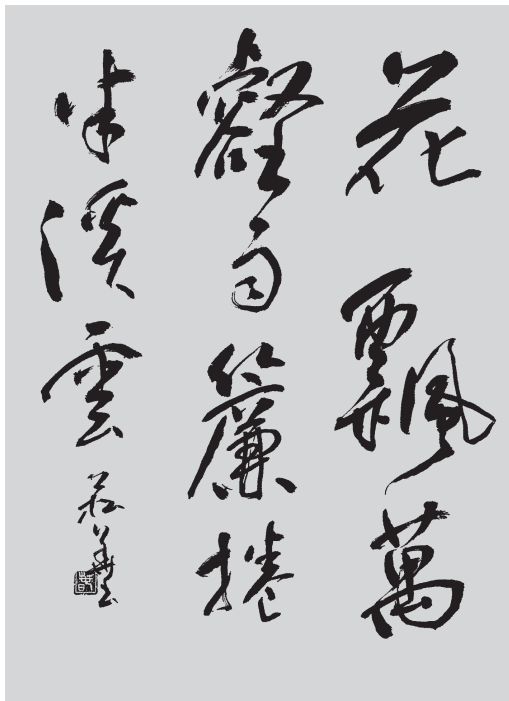 花飄萬
壑雨簾捲
半溪雲